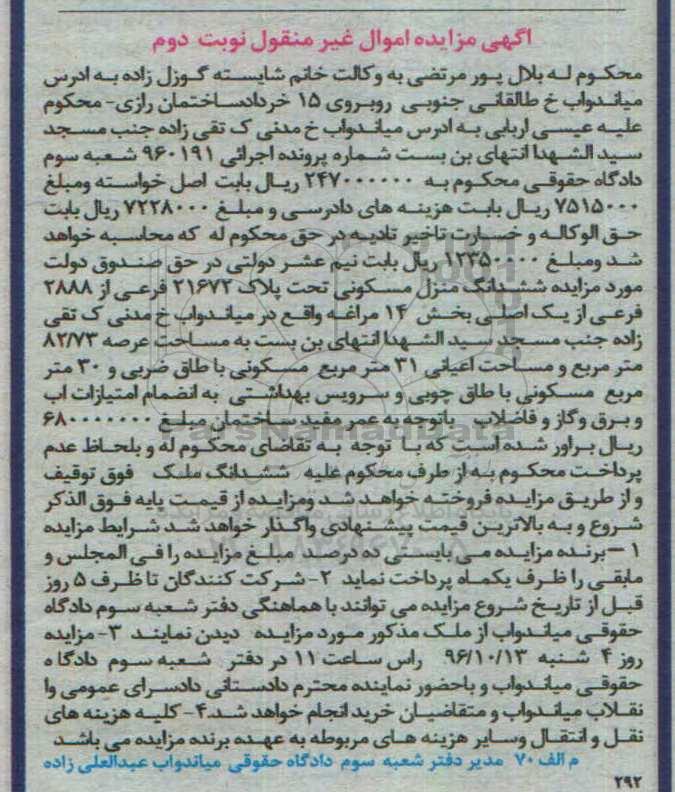 آگهی مزایده اموال غیر منقول نوبت دوم
محکوم له بلال پور مرتضی به وکالت خانم شایسته گوزل زاده به ادرس
میاندواب خ طالقانی جنوبی روبروی ۱۵ خرداد ساختمان رازی- محکوم
علیه عیسی اربابی به ادرس میاندواب خ مدنی ک تقی زاده جنب مسجد
سید الشهدا انتهای بن بست شماره پرونده اجرائی ۹۶۰۱۹۱ شعبه سوم
دادگاه حقوقی محکوم به ۲۴۷۰۰۰۰۰۰ ریال بابت اصل خواسته ومبلغ
۷۵۱۵۰۰۰ ریال بابت هزینه های دادرسی و مبلغ ۷۲۲۸۰۰۰ ریال بابت
حق الوکاله و خسارت تاخیر تادیه در حق محکوم له که محاسبه خواهد
شد ومبلغ ۱۲۳۵۰۰۰۰ ریال بابت نیم عشر دولتی در حق صندوق دولت
مورد مزایده ششدانگ منزل مسکونی تحت پلاک ۲۱۶۷۲ فرعی از ۲۸۸۸
فرعی از یک اصلی بخش ۱۴ مراغه واقع در میاندواب خ مدنی ک تقی
زاده جنب مسجد سید الشهدا انتهای بن بست به مساحت عرصه ۸۲/۷۳
متر مربع و مساحت اعیانی ۳۱ متر مربع مسکونی با طاق ضربی و ۳۰ متر
مربع مسکونی با طاق چوبی و سرویس بهداشتی به انضمام امتیازات اب
و برق وگاز و فاضلاب باتوجه به عمر مفید ساختمان مبلغ ۶۸۰۰۰۰۰۰۰
ریال براور شده است که با توجه به تقاضای محکوم له و بلحاظ عدم
پرداخت محکوم به از طرف محکوم علیه ششدانگ ملک فوق توقیف
و از طریق مزایده فروخته خواهد شد ومزایده از قیمت پایه فوق الذکر
شروع و به بالاترین قیمت پیشنهادی واگذار خواهد شد شرایط مزایده
۱ –برنده مزایده می بایستی ده درصد مبلغ مزایده را فی المجلس و
مابقی را ظرف یکماه پرداخت نماید ۲- شرکت کنندگان تا ظرف ۵ روز
قبل از تاریخ شروع مزایده می توانند با هماهنگی دفتر شعبه سوم دادگاه
حقوقی میاندواب از ملک مذکور مورد مزایده دیدن نمایند ۳- مزایده
روز ۴ شنبه ۹۶/۱۰/۱۳ راس ساعت ۱۱ در دفتر شعبه سوم دادگاه
حقوقی میاندواب و باحضور نماینده محترم دادستانی دادسرای عمومی وا
نقلاب میاندواب و متقاضیان خرید انجام خواهد شد.۴- کلیه هزینه های
نقل و انتقال وسایر هزینه های مربوطه به عهده برنده مزایده می باشد
م الف ۷۰ مدیر دفتر شعبه سوم دادگاه حقوقی میاندواب عبدالعلی زاده
۲۹۲